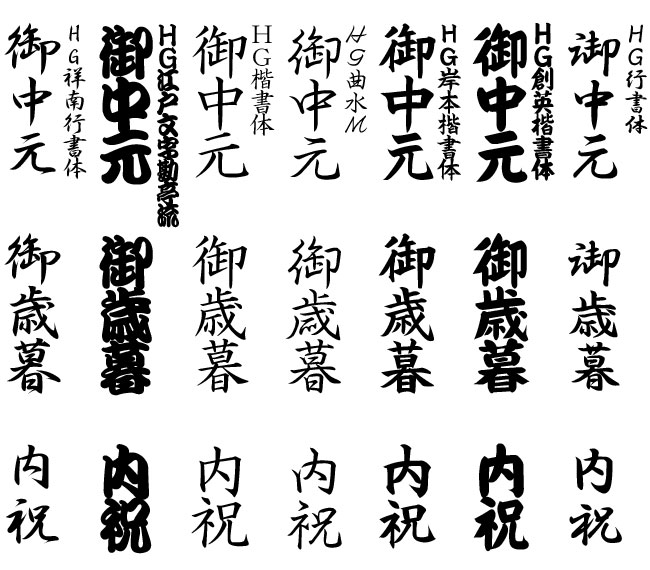 HG行書体
御中元
HG創英楷書体
御中元
HG岸本楷書体
御中元
HG曲水M
御中元
HG楷書体
御中元
HG江戸文字勘亭流
御中元
HG祥南行書体
御中元
御歳暮
御歳暮
御歳暮
御歳暮
御歳暮
御歳暮
御歳暮
内祝
内祝
内祝
内祝
内祝
内祝
内祝